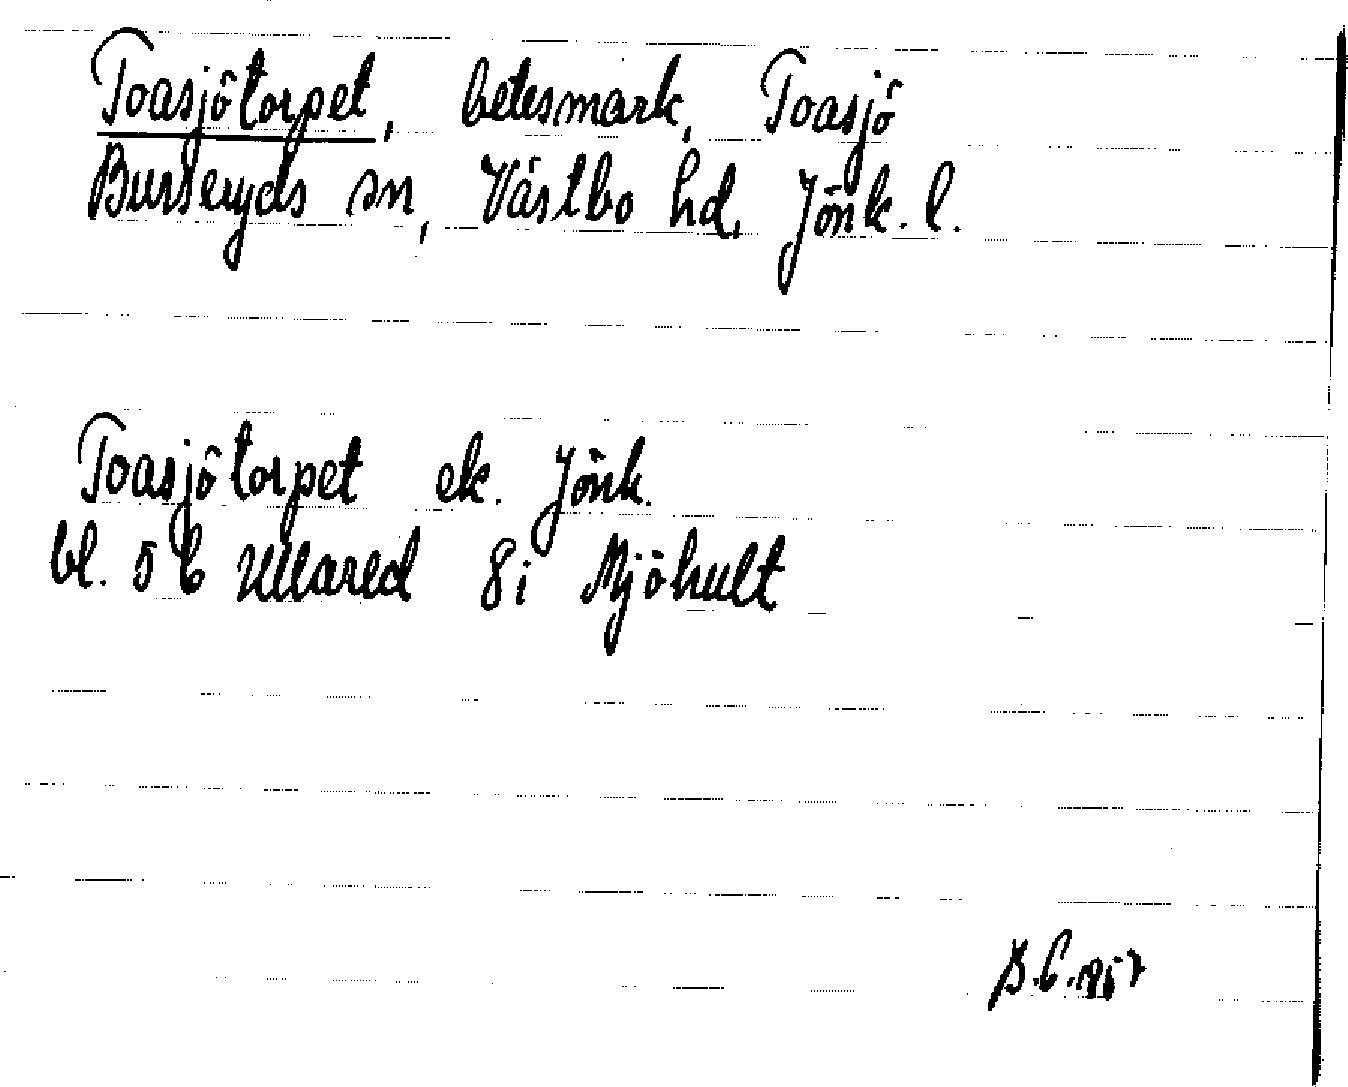 Toasjötorpet, betesmark, Toasjö
Burseryds sn, Västbo hd, Jönk. l.
Toasjötorpet ek. Jönk.
bl. 5 C Ullared 8 i Mjöhult
B.C. 1957